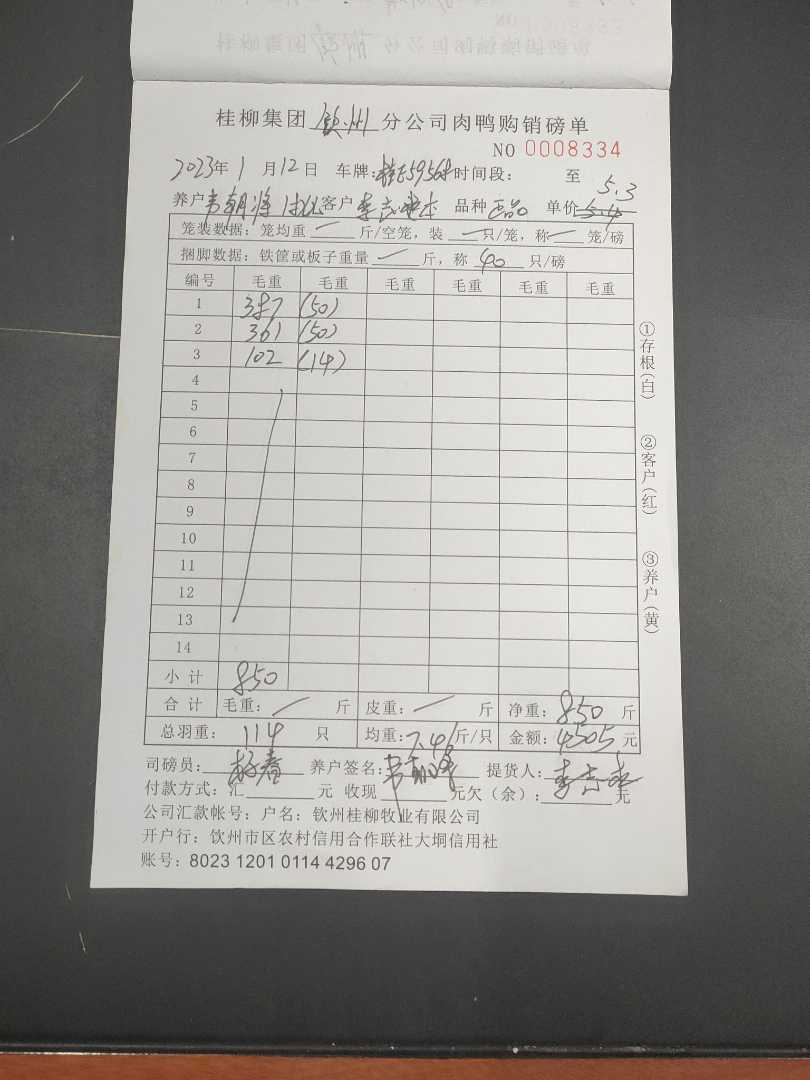 桂柳集团 钦州 分公司肉鸭购销磅单
NO 0008334
2023年 1 月 12 日 车牌: 时间段: 至
养户 客户 品种 正品 单价 5.4 5.3
笼装数据: 笼均重 一 斤/空笼, 装 一 只/笼, 称 一 笼/磅
捆脚数据: 铁筐或板子重量 一 斤, 称 40 只/磅
编号 毛重 毛重 毛重 毛重 毛重 毛重
1 387 (50)
2 361 (50)
3 102 (14)
4
5
6
7
8
9
10
11
12
13
14
小 计 850
合 计 毛重: 斤 皮重: 斤 净重: 850 斤
总羽重: 114 只 均重: 7.46 斤/只 金额: 4505 元
司磅员: 养户签名: 提货人:
付款方式: 汇 元 收现 元欠(余): 元
公司汇款帐号: 户名: 钦州桂柳牧业有限公司
开户行: 钦州市区农村信用合作联社大垌信用社
账号: 8023 1201 0114 4296 07
①存根(白)
②客户(红)
③养户(黄)